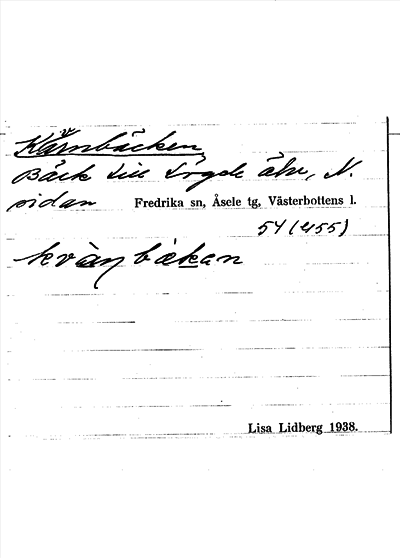 Kvarnbäcken
Bäck till Lögde älv, N.
sidan Fredrika sn, Åsele tg, Västerbottens l.
54 (455)
Lisa Lidberg 1938.